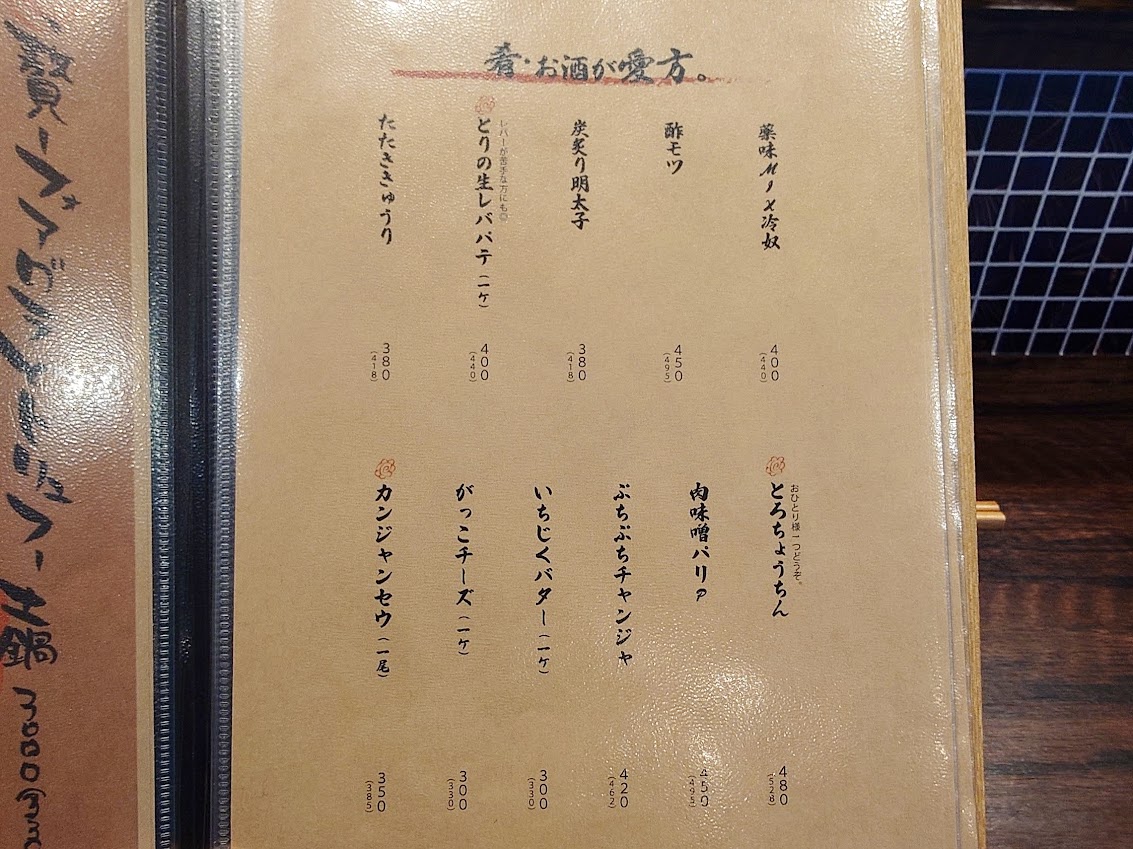 肴・お酒が愛方。
薬味MIX冷奴
400
(440)
酢モツ
450
(495)
炭炙り明太子
380
(418)
レバーが苦手な方にも◎
とりの生レバパテ(一ケ)
400
(440)
たたききゅうり
380
(418)
おひとり様一つどうぞ。
とろちょうちん
480
(528)
肉味噌パリP
450
(495)
ぷちぷちチャンジャ
420
(462)
いちじくバター(一ケ)
300
(330)
がっこチーズ(一ケ)
300
(330)
カンジャンセウ(一尾)
350
(385)